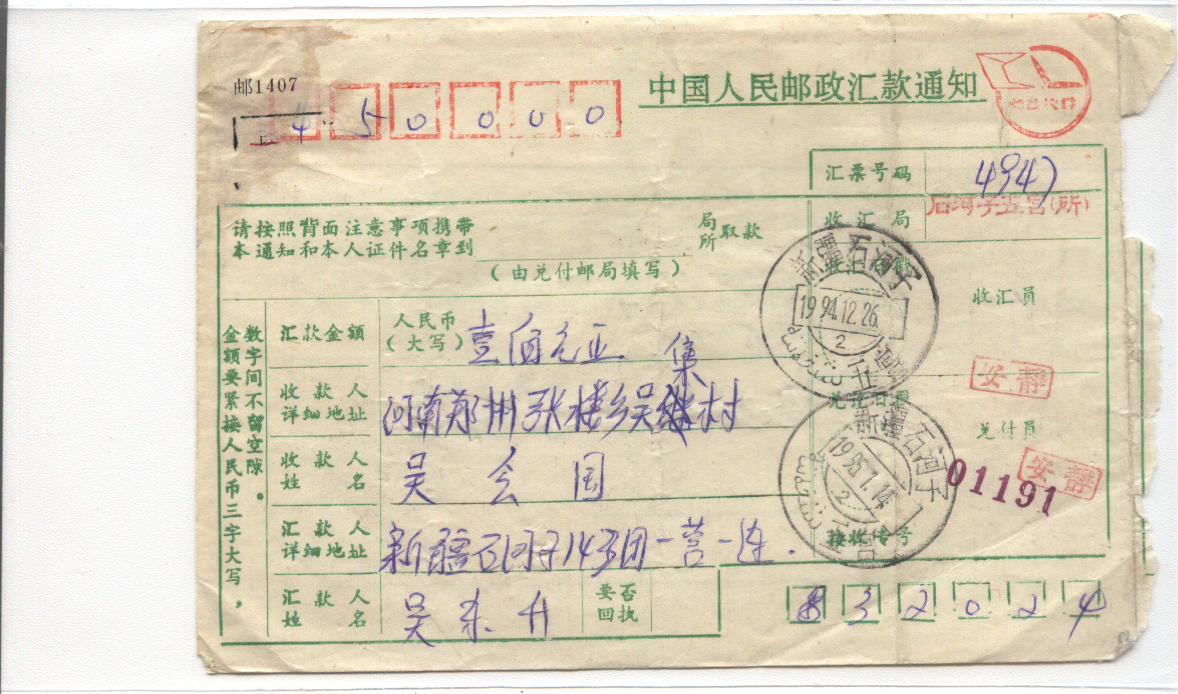 邮1407
中国人民邮政汇款通知
450000
汇票号码 4947
请按照背面注意事项携带
本通知和本人证件名章到
局
所
取款
(由兑付邮局填写)
收汇局 石河子五宫(所)
收汇员
安静
新疆石河子
1994.12.26
2
数字间不留空隙。
金额要紧接人民币三字大写,
汇款金额 人民币(大写) 壹佰元正
收款人详细地址 河南郑州张楼乡吴集村
收款人姓名 吴会国
汇款人详细地址 新疆石河子143团一营一连.
汇款人姓名 吴东升
要否回执
兑付员
安静
新疆石河子
1995.1.14
2
01191
接收传号
832024